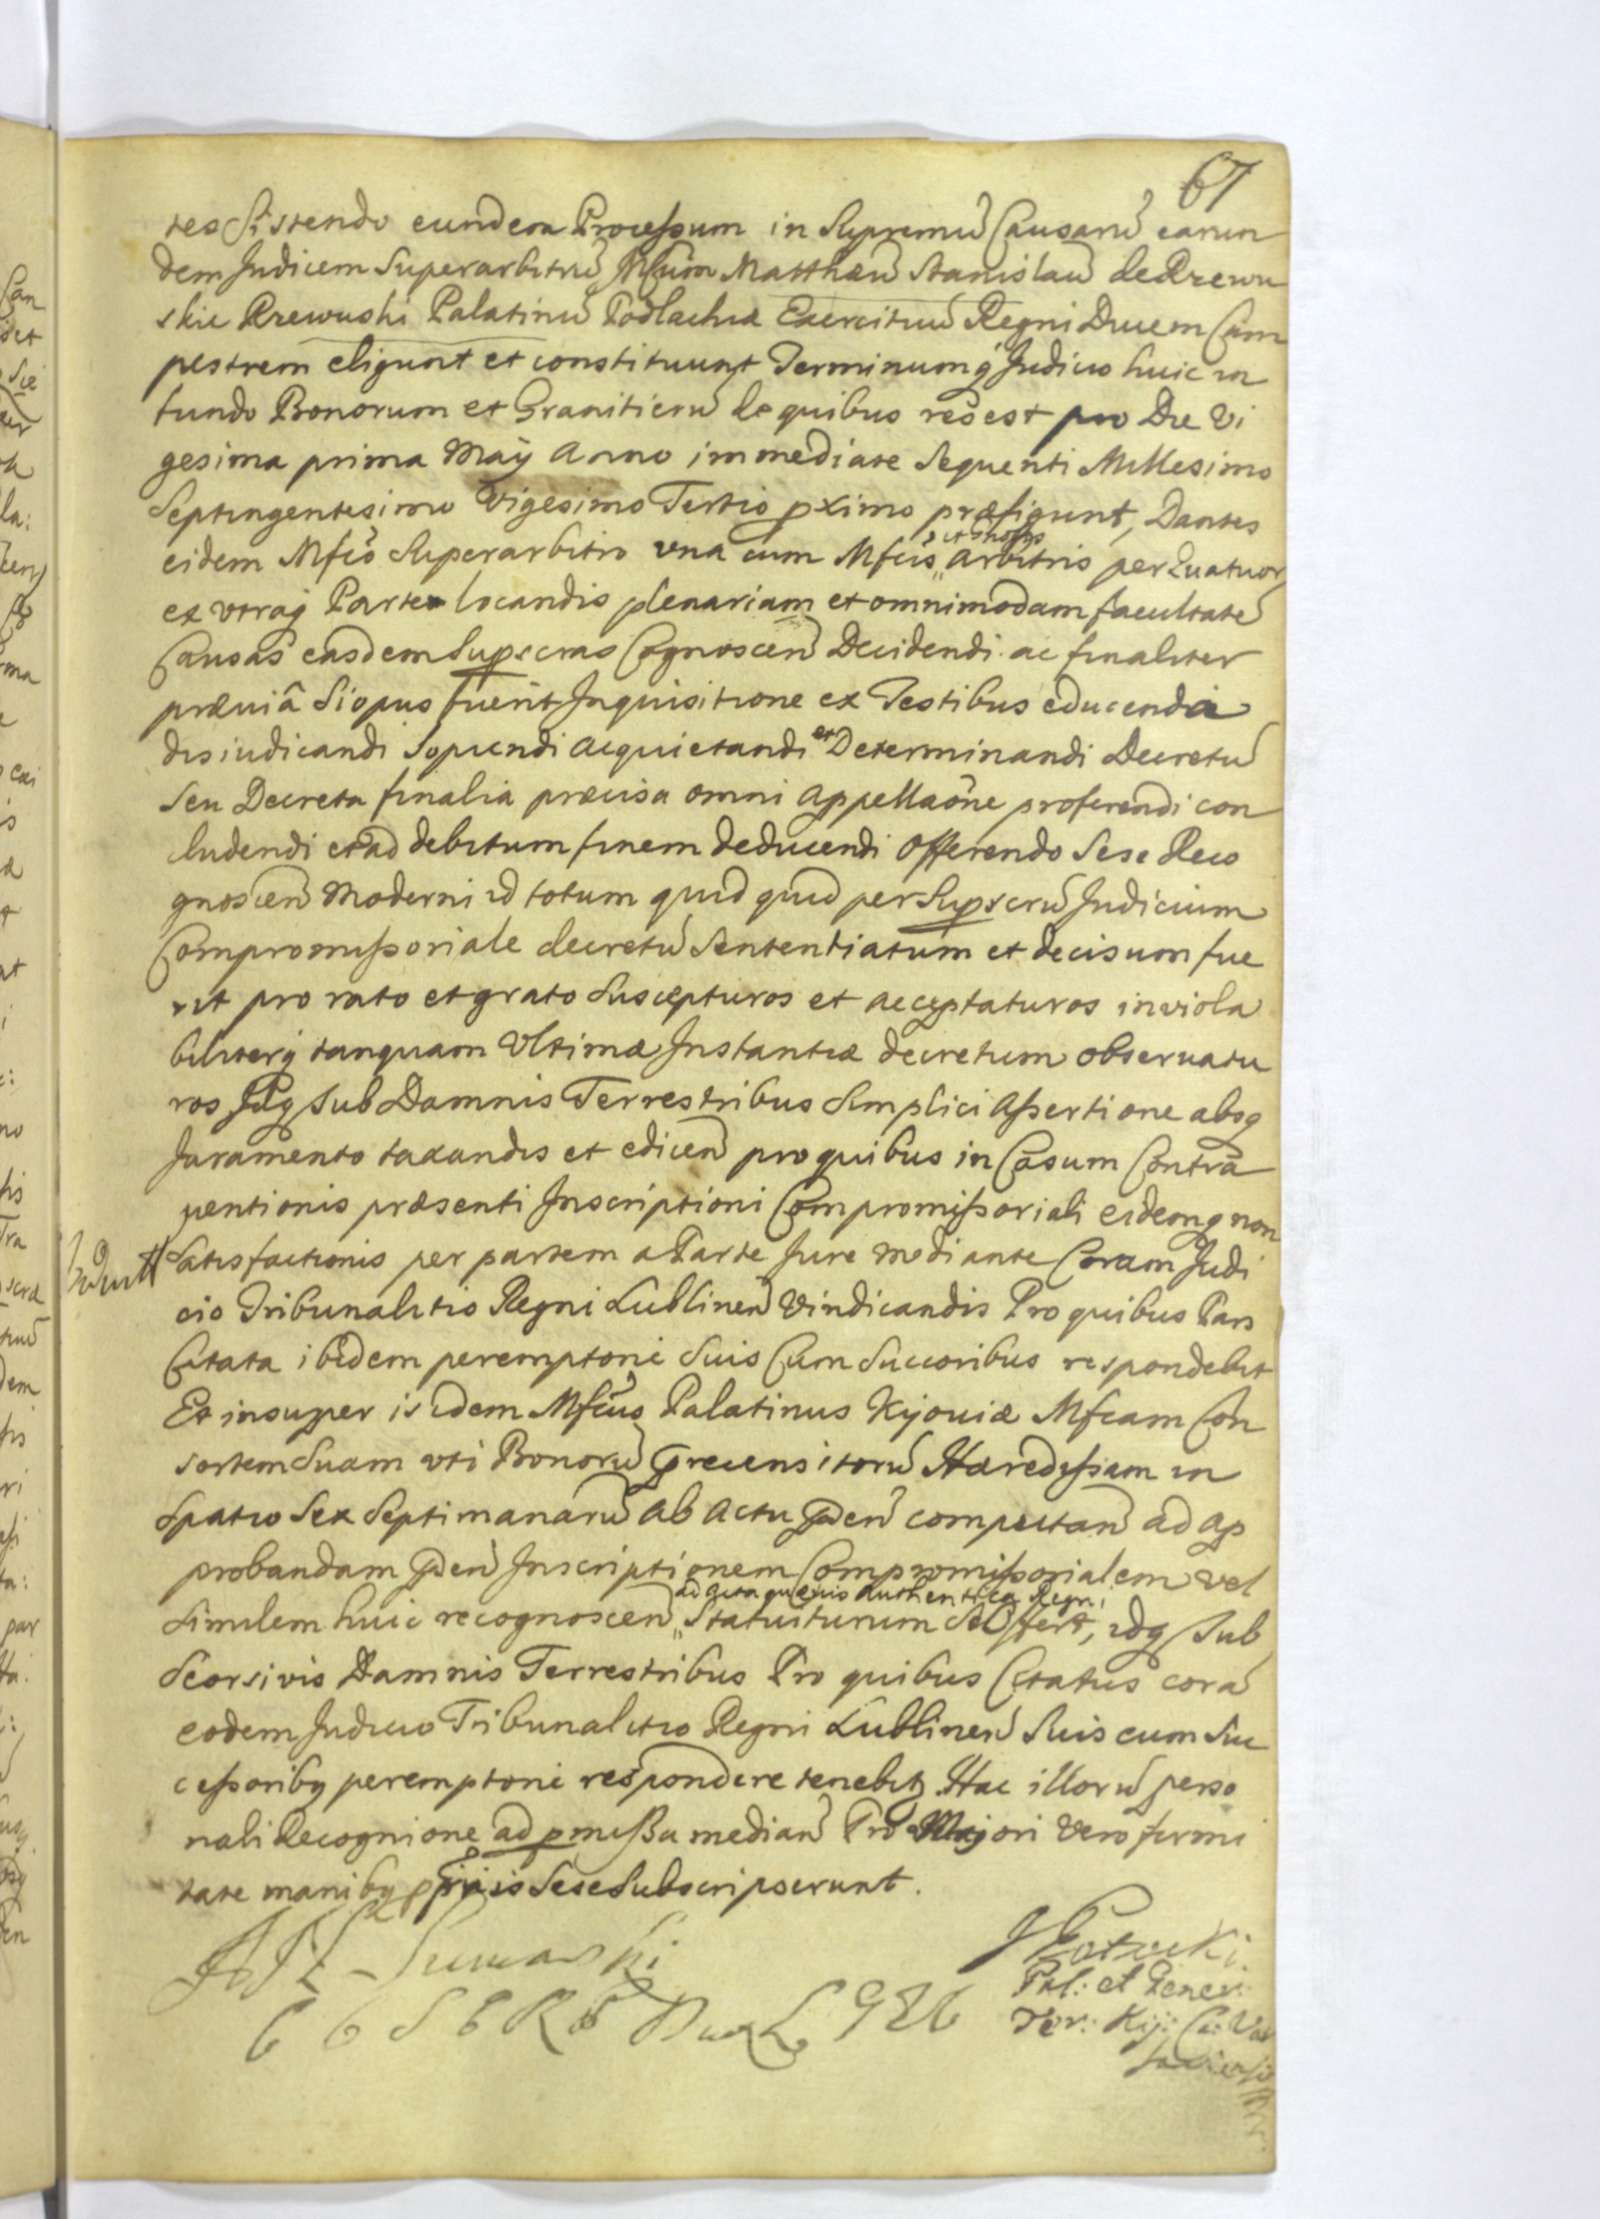 67
tes Sistendo eundem Processum in Supremũ Causarũ earun
dem Judicem Superarbitrũ Mfcum Matthæũ Stanislaũ de Rzewu
skie Rzewuski Palatinũ Podlachiæ Exercituũ Regni Ducem Cam
pestrem eligunt et constituunt Terminumq́ Judicio huic in
fundo Bonorum et Graniticrũ de quibus res est pro Die Vi
gesima prima Maÿ Anno immediate Sequenti Millesimo
Septingentesimo Vigesimo Tertio pximo præfigunt, Dantes
eidem Mfco Superarbitro una cum Mfcis arbitris per Quatuor
ex utraq́ Parte locandis plenariam et omnimodam facultatẽ
Causas easdem Supscras Cognoscen̄ Decidendi ac finaliter
præviâ Si opus fuerit Inquisitione ex Testibus educenda
disiudicandi Sopiendi acquietandi et Determinandi Decretũ
Seu Decreta finalia præcisa omni appellaõne proferendi con
cludendi et ad debitum finem deducendi Offerendo Sese Reco
gnoscen̄ Moderni id totum quid quid per Supscrũ Judicium
Compromissoriale decretũ Sententiatum et decisum fue
rit pro rato et grato Suscepturos et acceptaturos inviola
biliterq́ tanquam Ultimæ Instantiæ decretum observatu
ros Idq́ Sub Damnis Terrestribus Simplici assertione absq́
Juramento taxandis et edicen̄ pro quibus in Casum Contra
ventionis præsenti Inscriptioni Compromissoriali eidemq́ non
Satisfactionis per partem a Parte Jure mediante Coram Judi
cio Tribunalitio Regni Lublinen̄ Vindicandis Pro quibus Pars
Citata ibidem peremptorie Suis Cum Succoribus respondebit
Et insuper isdem Mfcus Palatinus Kijoviæ Mfcam Con
sortem Suam uti Bonorũ precensitorũ Hæredissam in
Spatio Sex Septimanarũ ab actu pden̄ computan̄ ad ap
probandam pden̄ Inscriptionem Compromissorialem vel
ad acta quævis authentica Regni
Similem huic recognoscen̄ Statuiturum Se offert, idq́ Sub
Seorsivis Damnis Terrestribus Pro quibus Citatus corã
eodem Judicio Tribunalitio Regni Lublinen̄ Suis cum Suc
cessoribq peremptorie respondere tenebit Hac illorũ perso
nali Recognione ad pmissa median̄ Pro Majori Vero firmi
tate manibq ppriis Sese Subscripserunt.
J Potocki
Pal: et Gener:
Ter: Kij: